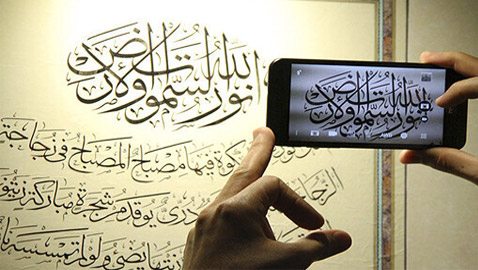 الله نور السموات والارض
فيها مصباح المصباح فى زجاجة
درى يوقد من شجرة مباركة
زيتها يضىء ولو لم تمسسه
الله نور السموات والارض